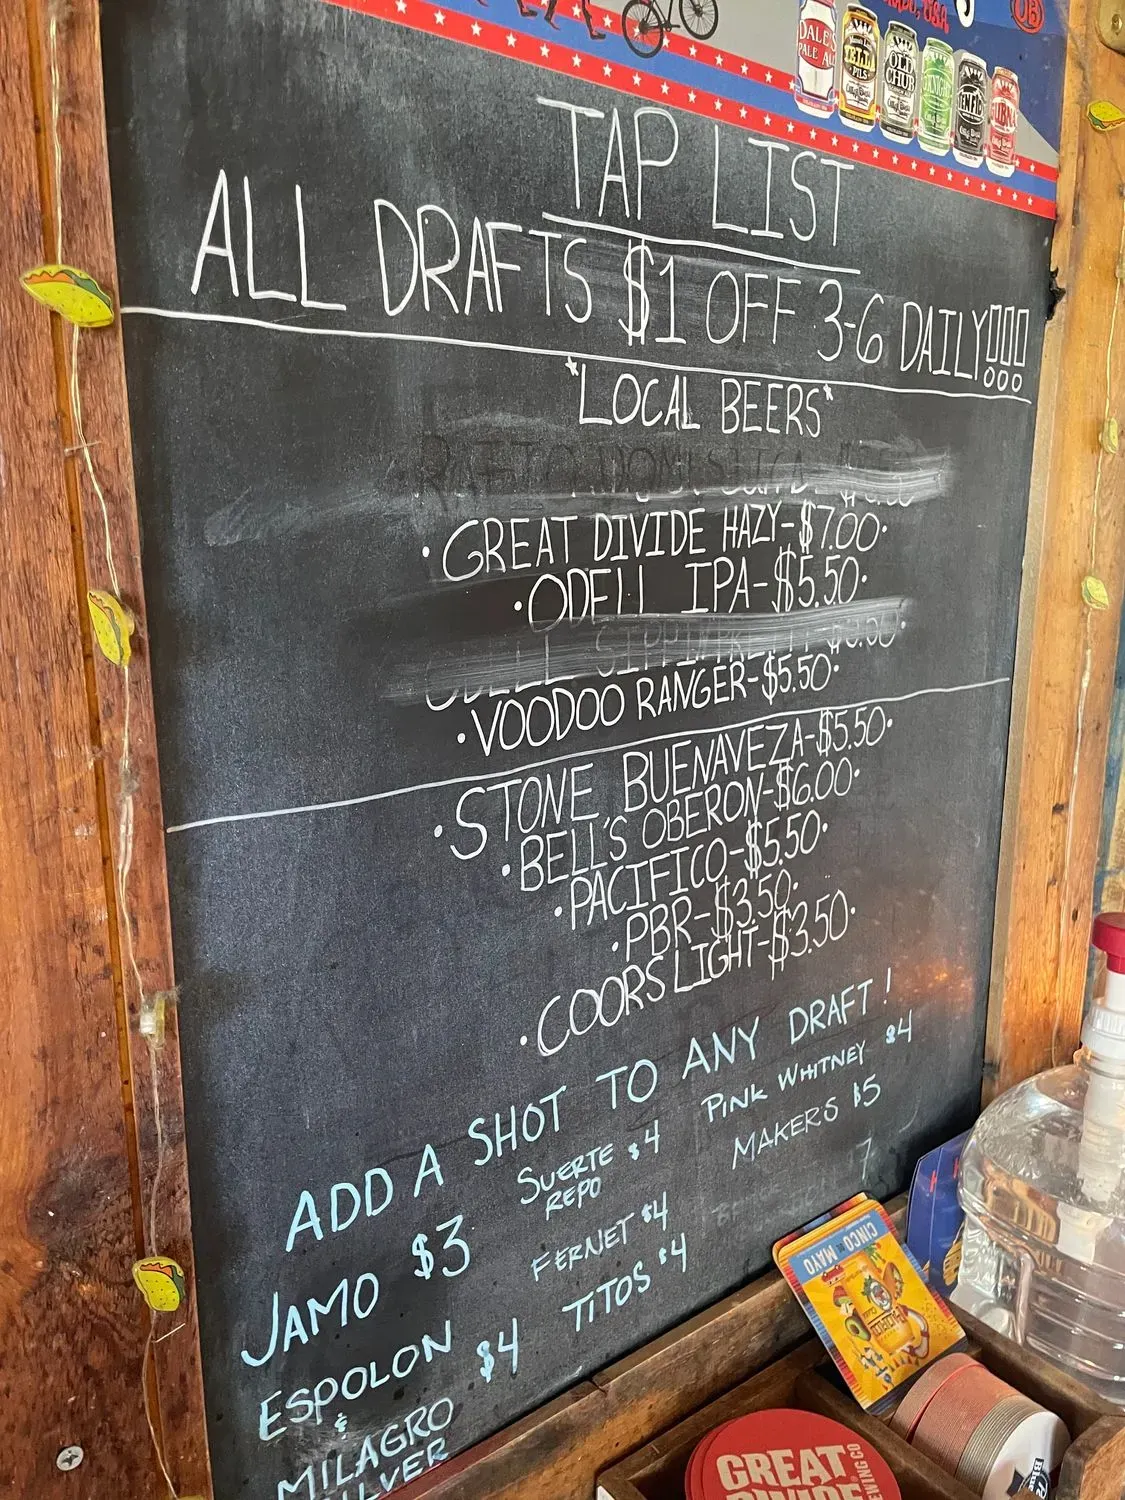 DALE'S
PALE ALE
OLD
CHUB
TEN FIDY
TAP LIST
ALL DRAFTS $1 OFF 3-6 DAILY!!!
*LOCAL BEERS*
• GREAT DIVIDE HAZY-$7.00•
• ODELL IPA-$5.50•
ODELL SIPPIN PRETTY $5.50•
• VOODOO RANGER-$5.50•
• STONE BUENAVEZA-$5.50•
• BELL'S OBERON-$6.00•
• PACIFICO-$5.50•
• PBR-$3.50•
• COORS LIGHT-$3.50•
ADD A SHOT TO ANY DRAFT!
JAMO $3
ESPOLON
&
MILAGRO
SILVER
$4
SUERTE $4
REPO
FERNET $4
TITOS $4
PINK WHITNEY $4
MAKERS $5
7
CINCO de MAYO
GREAT
DIVIDE
BREWING CO